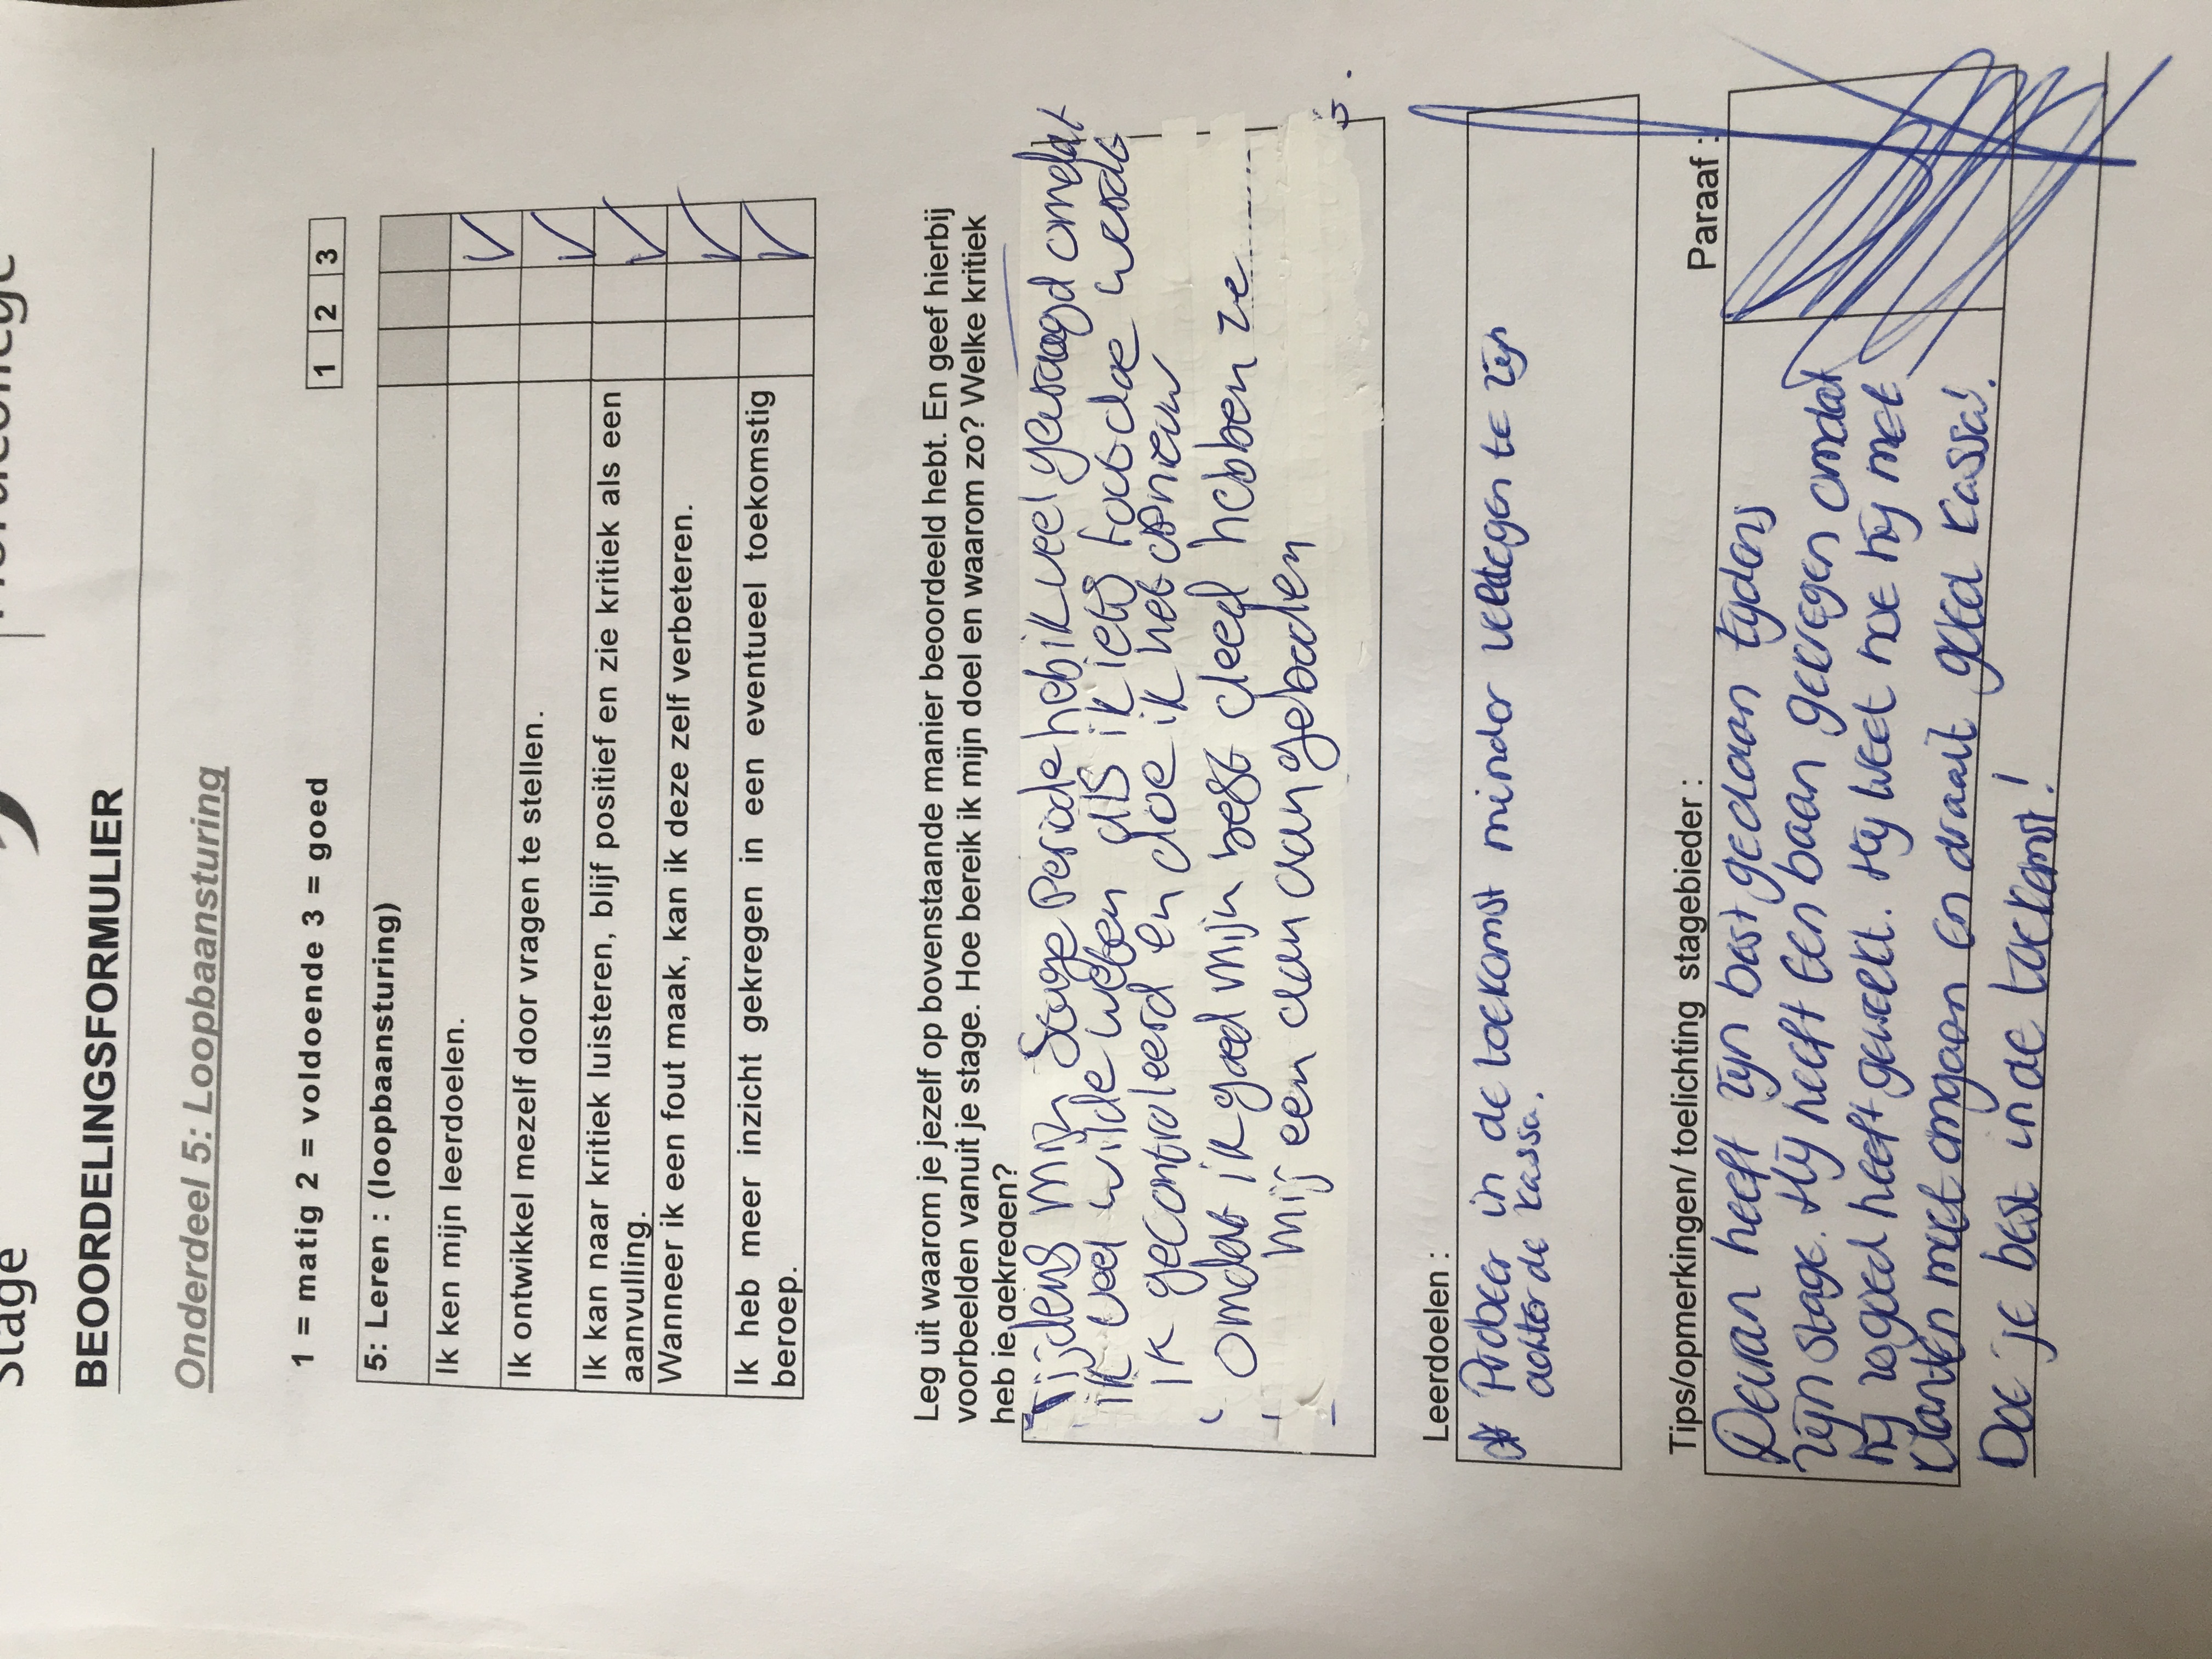 Stage
BEOORDELINGSFORMULIER
Onderdeel 5: Loopbaansturing
1 = matig 2 = voldoende 3 = goed
1 2 3
5: Leren : (loopbaansturing)
Ik ken mijn leerdoelen.
Ik ontwikkel mezelf door vragen te stellen.
Ik kan naar kritiek luisteren, blijf positief en zie kritiek als een
aanvulling.
Wanneer ik een fout maak, kan ik deze zelf verbeteren.
Ik heb meer inzicht gekregen in een eventueel toekomstig
beroep.
Leg uit waarom je jezelf op bovenstaande manier beoordeeld hebt. En geef hierbij
voorbeelden vanuit je stage. Hoe bereik ik mijn doel en waarom zo? Welke kritiek
heb je gekregen?
Tijdens mijn Stage Periode heb ik veel gevraagd omdat
ik veel wilde weten als ik iets fout doe werdt
ik gecontroleerd en doe ik het opnieuw
omdat ik goed mijn best deed hebben ze
mij een baan aangeboden
Leerdoelen :
* Probeer in de toekomst minder verlegen te zijn
achter de kassa.
Tips/opmerkingen/ toelichting stagebieder :
Paraaf :
heeft zijn best gedaan tijdens
zijn stage. Hij heeft een baan gekregen omdat
hij zo goed heeft gewerkt. Hij weet hoe hij met
klanten moet omgaan en draait goed kassa!
Doe je best in de toekomst!